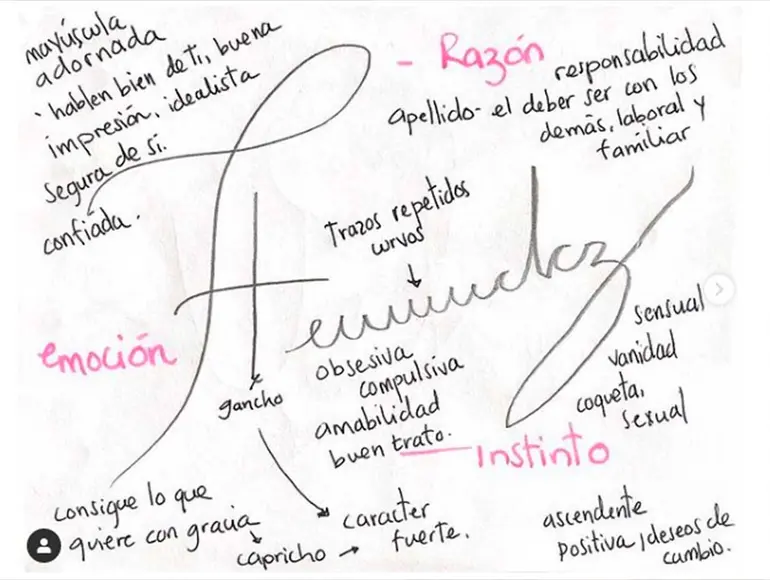 mayúscula
adornada
· hablen bien de ti, buena
impresión, idealista
segura de sí.
confiada.
- Razón
responsabilidad
apellido- el deber ser con los
demás, laboral y
familiar
Trazos repetidos
curvos
emoción
gancho
obsesiva
compulsiva
amabilidad
buen trato.
Instinto
sensual
vanidad
coqueta,
sexual
consigue lo que
quiere con gracia
capricho
caracter
fuerte.
ascendente
positiva, deseos de
cambio.